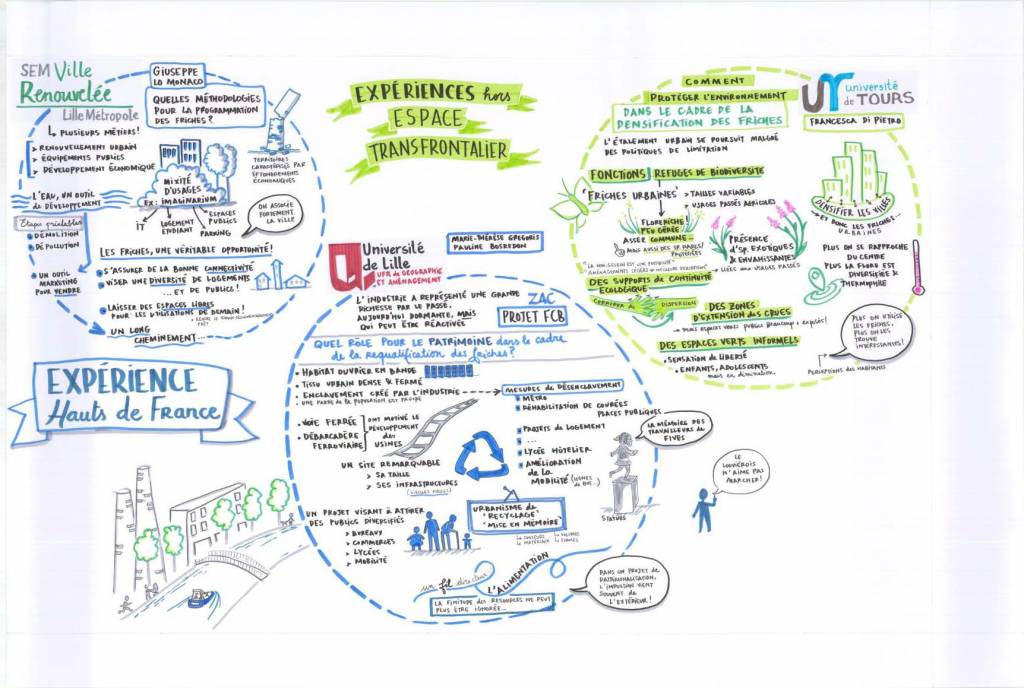 SEM Ville
Renouvelée
Lille Métropole
GIUSEPPE
LO MONACO
QUELLES MÉTHODOLOGIES
POUR LA PROGRAMMATION
DES FRICHES?
PLUSIEURS MÉTIERS!
> RENOUVELLEMENT URBAIN
> ÉQUIPEMENTS PUBLICS
> DÉVELOPPEMENT ÉCONOMIQUE
TERRITOIRES
CARACTÉRISÉS PAR
EFFONDREMENTS
ÉCONOMIQUES
L'EAU, UN OUTIL
DE DÉVELOPPEMENT
MIXITÉ
D'USAGES
EX: IMAGINARIUM
IT
LOGEMENT
ÉTUDIANT
ESPACES
PUBLICS
PARKING
ON ASSOCIE
FORTEMENT
LA VILLE
Étapes préalables
DÉMOLITION
DÉPOLLUTION
UN OUTIL
MARKETING
POUR VENDRE
LES FRICHES, UNE VÉRITABLE OPPORTUNITÉ!
S'ASSURER DE LA BONNE CONNECTIVITÉ
VISER UNE DIVERSITÉ DE LOGEMENTS
... ET DE PUBLICS!
LAISSER DES ESPACES LIBRES
POUR LES UTILISATIONS DE DEMAIN!
UN LONG
CHEMINEMENT...
EXPÉRIENCE
Hauts de France
EXPÉRIENCES hors
ESPACE
TRANSFRONTALIER
Université
de Lille
UFR DE GÉOGRAPHIE
ET AMÉNAGEMENT
MARIE-THÉRÈSE GREGORIS
PAULINE BOSREDON
L'INDUSTRIE A REPRÉSENTÉ UNE GRANDE
RICHESSE PAR LE PASSÉ,
AUJOURD'HUI DORMANTE, MAIS
QUI PEUT ÊTRE RÉACTIVÉE
ZAC
PROJET FCB
QUEL RÔLE POUR LE PATRIMOINE dans le cadre
de la requalification des friches?
HABITAT OUVRIER EN BANDE
TISSU URBAIN DENSE & FERMÉ
ENCLAVEMENT CRÉÉ PAR L'INDUSTRIE
UNE PARTIE DE LA POPULATION EST PAUVRE
MESURES DE DÉSENCLAVEMENT
MÉTRO
RÉHABILITATION DE COURÉES
PLACES PUBLIQUES
PROJETS DE LOGEMENT
...
LYCÉE HÔTELIER
AMÉLIORATION
DE LA
MOBILITÉ
VOIE FERRÉE
DÉBARCADÈRE
FERROVIAIRE
ONT MOTIVÉ LE
DÉVELOPPEMENT
des
USINES
UN SITE REMARQUABLE
> SA TAILLE
> SES INFRASTRUCTURES
(VIEILLES HALLES)
LA MÉMOIRE DES
TRAVAILLEURS DE
FIVES
STATUES
UN PROJET VISANT À ATTIRER
DES PUBLICS DIVERSIFIÉS
> BUREAUX
> COMMERCES
> LYCÉES
> MOBILITÉ
URBANISME DE
"RECYCLAGE"
"MISE EN MÉMOIRE"
un fil directeur
L'ALIMENTATION
LA FINITUDE DES RESSOURCES NE PEUT
PLUS ÊTRE IGNORÉE...
DANS UN PROJET DE
PATRIMONIALISATION,
L'IMPULSION VIENT
SOUVENT DE
L'EXTÉRIEUR!
LE
LOUVIÉROIS
N'AIME PAS
MARCHER!
COMMENT
PROTÉGER L'ENVIRONNEMENT
DANS LE CADRE DE LA
DENSIFICATION DES FRICHES
université
de TOURS
FRANCESCA DI PIETRO
L'ÉTALEMENT URBAIN SE POURSUIT MALGRÉ
DES POLITIQUES DE LIMITATION
FONCTIONS
REFUGES DE BIODIVERSITÉ
'FRICHES URBAINES'
> TAILLES VARIABLES
> USAGES PASSÉS AGRICOLES
FLORE RICHE!
PEU GÉRÉE
ASSEZ COMMUNE...
MAIS AUSSI DES SP. RARES/
PROTÉGÉES
PRÉSENCE
D'SP. EXOTIQUES
& ENVAHISSANTES
LIÉES AUX USAGES PASSÉS
DENSIFIER LES VILLES
ET DONC LES FRICHES
URBAINES
PLUS ON SE RAPPROCHE
DU CENTRE
PLUS LA FLORE EST
DIVERSIFIÉE &
THERMOPHILE
DES SUPPORTS DE CONTINUITÉ
ÉCOLOGIQUE
CORRIDOR
DISPERSION
DES ZONES
D'EXTENSION DES CRUES
DES ESPACES VERTS INFORMELS
SENSATION DE LIBERTÉ
ENFANTS, ADOLESCENTS
mais en diminution
PLUS ON UTILISE
LES FRICHES,
PLUS ON LES
TROUVE
INTÉRESSANTES!
PERCEPTIONS DES HABITANTS